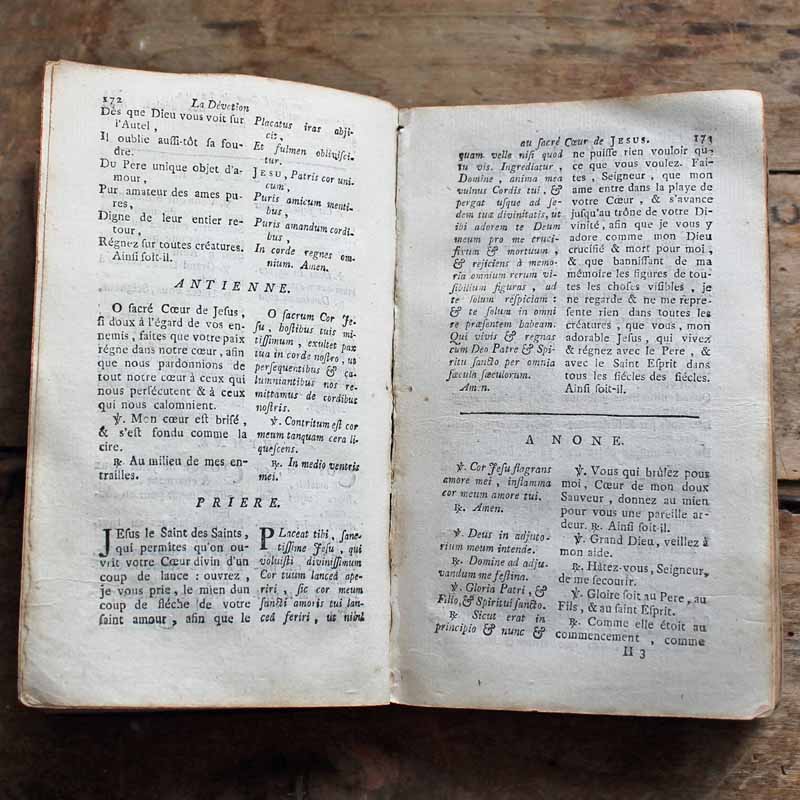 172
La Dévotion
Dès que Dieu vous voit ſur
l'Autel,
Il oublie auſſi-tôt ſa fou-
dre.
Du Pere unique objet d'a-
mour,
Pur amateur des ames pu-
res,
Digne de leur entier re-
tour,
Régnez ſur toutes créatures.
Ainſi ſoit-il.
Placatus iras abji-
cit,
Et fulmen obliviſci-
tur.
JESU, Patris cor uni-
cum,
Puris amicum menti-
bus,
Puris amandum cordi-
bus,
In corde regnes om-
nium. Amen.
ANTIENNE.
O ſacré Cœur de Jeſus,
ſi doux à l'égard de vos en-
nemis, faites que votre paix
régne dans notre cœur, afin
que nous pardonnions de
tout notre cœur à ceux qui
nous perſécutent & à ceux
qui nous calomnient.
℣. Mon cœur eſt briſé,
& s'eſt fondu comme la
cire.
℟. Au milieu de mes en-
trailles.
O ſacrum Cor Je-
ſu, hoſtibus tuis mi-
tiſſimum, exultet pax
tua in corde noſtro, ut
perſequentibus & ca-
lumniantibus nos re-
mittamus de cordibus
noſtris.
℣. Contritum eſt cor
meum tanquam cera li-
queſcens.
℟. In medio ventris
mei.
PRIERE.
JEſus le Saint des Saints,
qui permites qu'on ou-
vrit votre Cœur divin d'un
coup de lance : ouvrez,
je vous prie, le mien d'un
coup de fléche de votre
ſaint amour, afin que le
PLaceat tibi, ſanc-
tiſſime Jeſu, qui
voluiſti diviniſſimum
Cor tutum lanceâ ape-
riri, ſic cor meum
ſancti amoris tui lan-
ceâ feriri, ut nihil
au ſacré Cœur de JESUS.
173
quam velle niſi quod
tu vis. Ingrediatur,
Domine, anima mea
vulnus Cordis tui, &
pergat uſque ad ſe-
dem tuæ divinitatis, ut
ibi adorem te Deum
meum pro me cruci-
fixum & mortuum,
& rejiciens à memo-
riâ omnium rerum vi-
ſibilium figuras, ad
te ſolum reſpiciam :
& te ſolum in omni
re præſentem habeam.
Qui vivis & regnas
cum Deo Patre & Spi-
ritu ſancto per omnia
ſæcula ſæculorum.
Amen.
ne puiſſe rien vouloir que
ce que vous voulez. Fai-
tes, Seigneur, que mon
ame entre dans la playe de
votre Cœur, & s'avance
juſqu'au trône de votre Di-
vinité, afin que je vous y
adore comme mon Dieu
crucifié & mort pour moi,
& que banniſſant de ma
mémoire les figures de tou-
tes les choſes viſibles, je
ne regarde & ne me repré-
ſente rien dans toutes les
créatures, que vous, mon
adorable Jeſus, qui vivez
& régnez avec le Pere, &
avec le Saint Eſprit dans
tous les ſiécles des ſiécles.
Ainſi ſoit-il.
A NONE.
℣. Cor Jeſu flagrans
amore mei, inflamma
cor meum amore tui.
℟. Amen.
℣. Deus in adjuto-
rium meum intende.
℟. Domine ad adju-
vandum me feſtina.
℣. Gloria Patri, &
Filio, & Spiritui ſancto.
℟. Sicut erat in
principio & nunc &
℣. Vous qui brûlez pour
moi, Cœur de mon doux
Sauveur, donnez au mien
pour vous une pareille ar-
deur. ℟. Ainſi ſoit-il.
℣. Grand Dieu, veillez à
mon aide.
℟. Hâtez-vous, Seigneur,
de me ſecourir.
℣. Gloire ſoit au Pere, au
Fils, & au ſaint Eſprit.
℟. Comme elle étoit au
commencement, comme
H 3